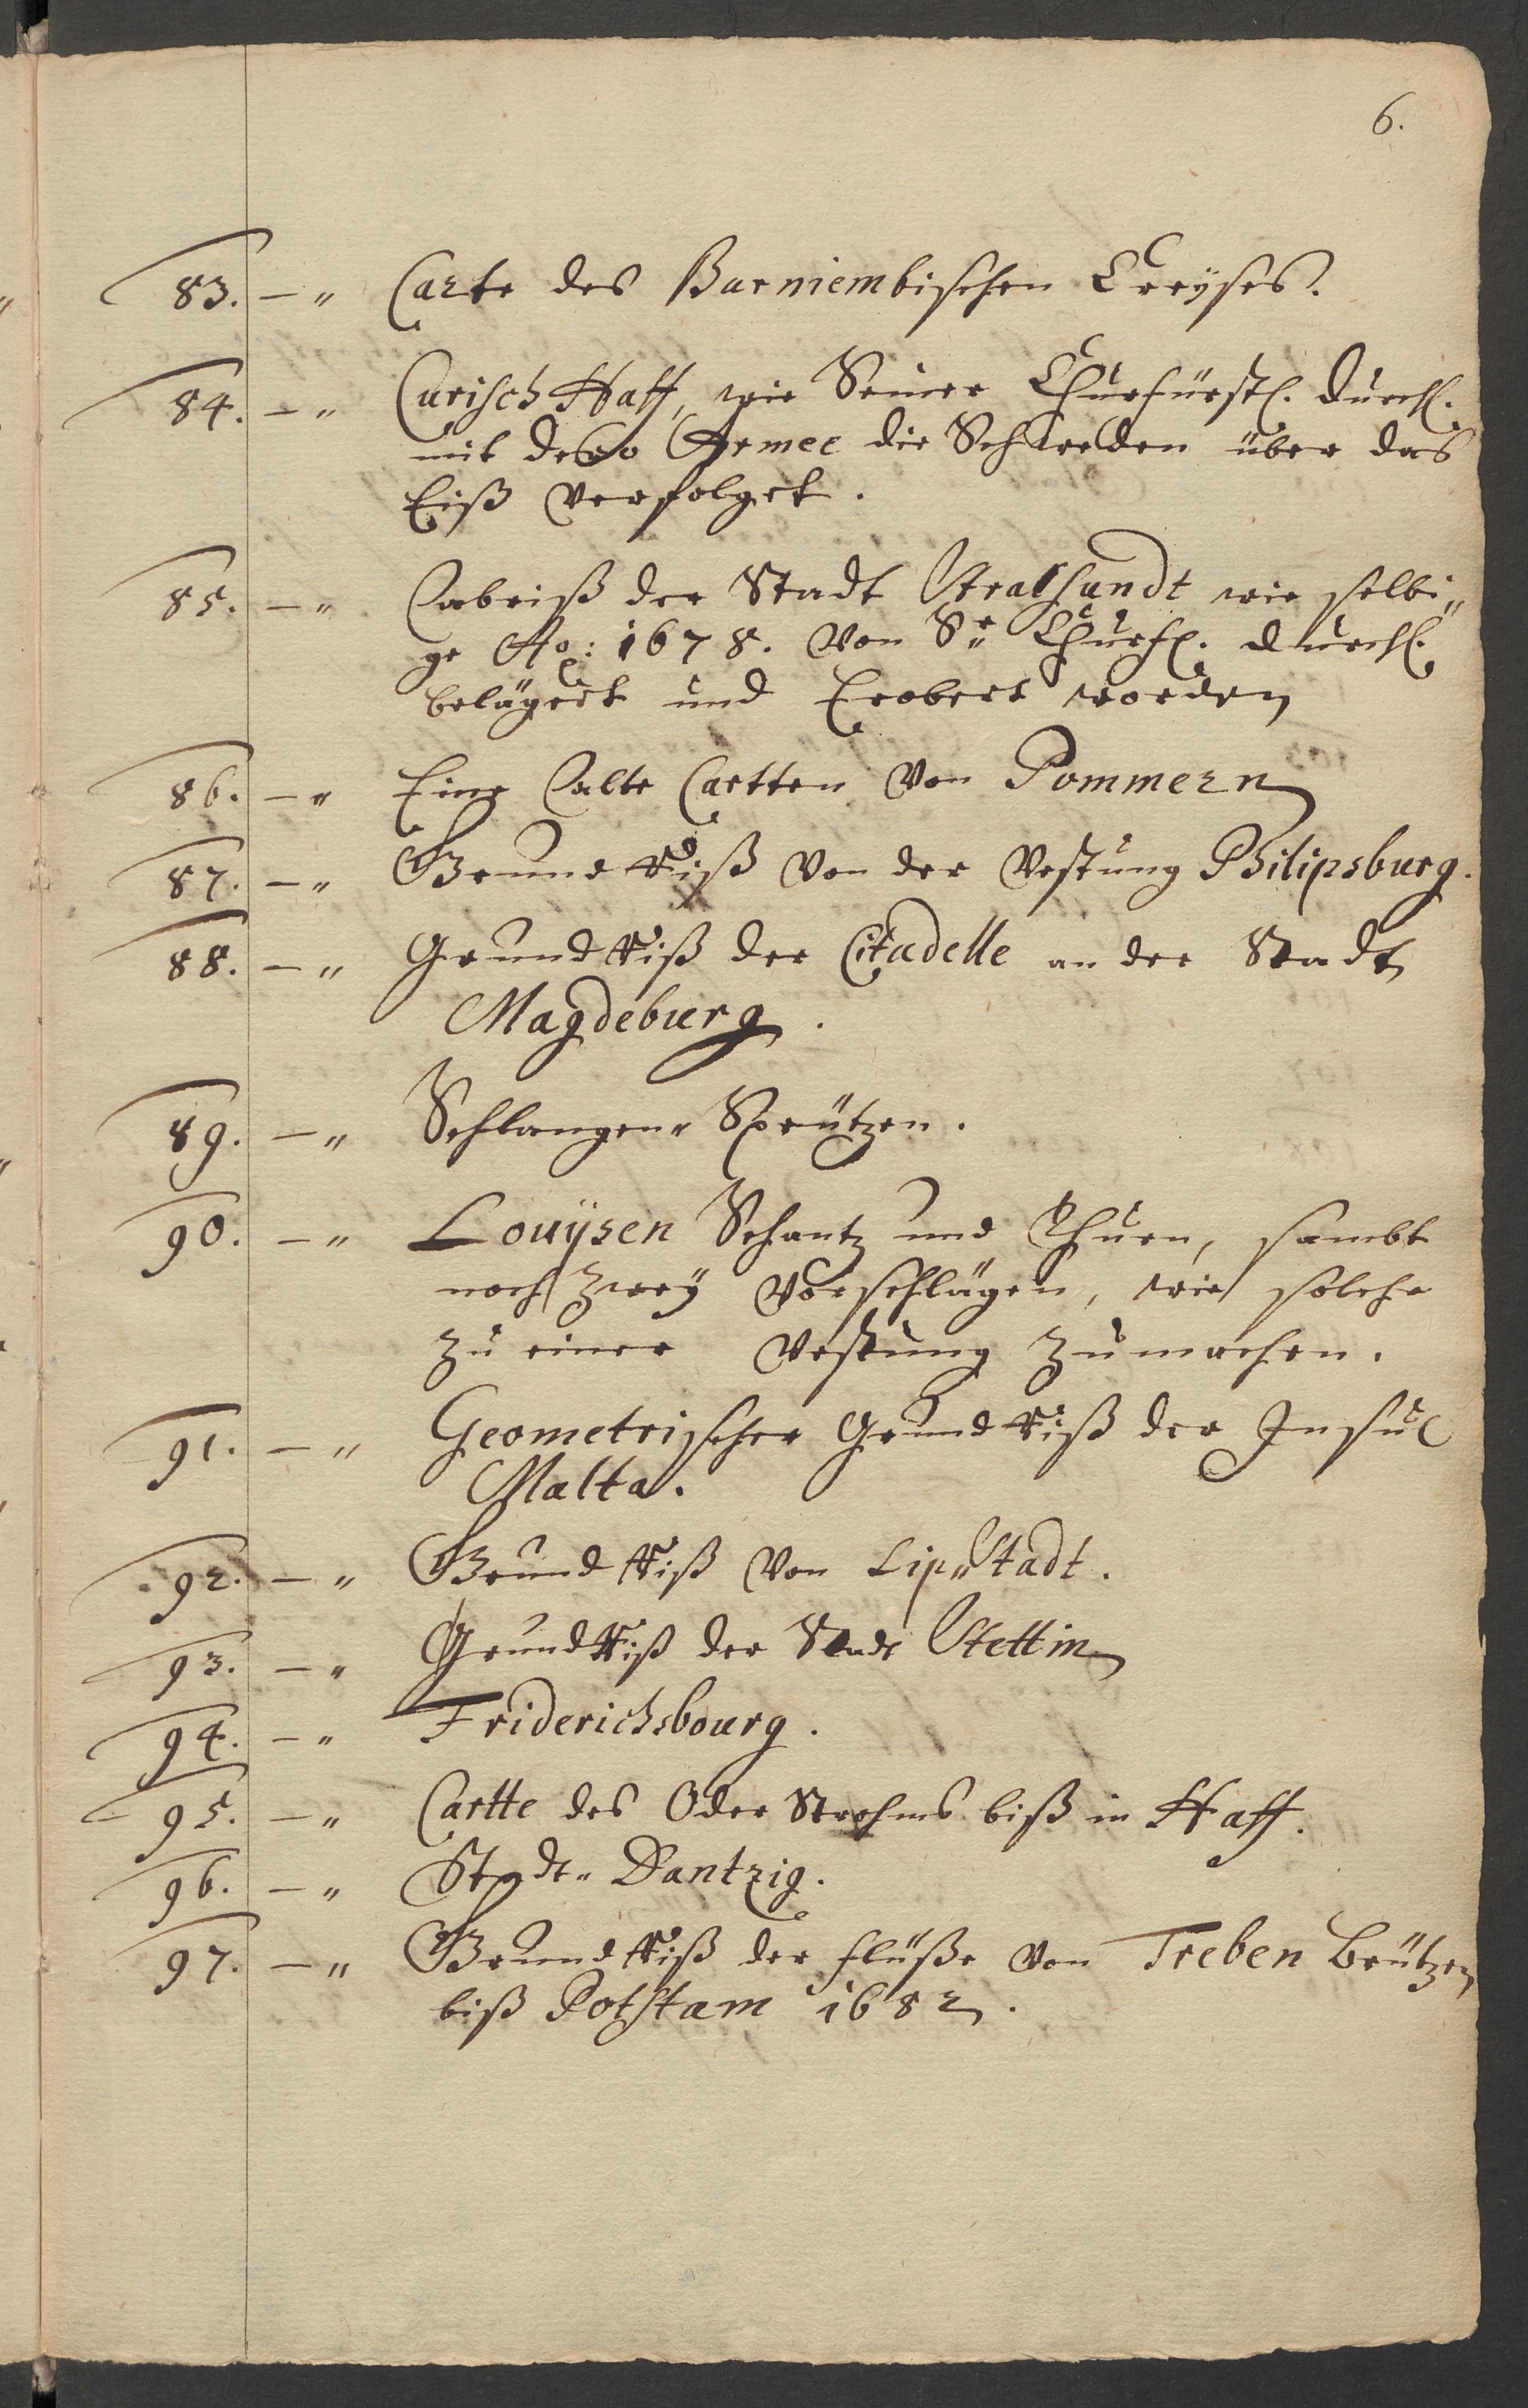 6.
83. — „ Carte des Barniembischen Creÿses.
84. — „ Curisch Haff, wie Seiner Churfürstl. Durchl.
mit dero Armee die Schweden über das
Eiß verfolget.
85. — „ Aabriß der Stadt Stralsundt wie selbi„
ge Ao: 1678. von Sr Churfl. Durchl.
belägert und Erobert worden
86. — „ Eine Alte Cartten von Pommern
87. — „ Grund Riß von der Vestung Philipsburg.
88. — „ Grund Riß der Citadelle an der Stadt
Magdeburg.
89. — „ Schlangen„ Sprützen.
90. — „ Louÿsen Schantz und Thurn, sambt
noch Zweÿ Vorschlägen, wie solche
zu einer Vestung zu machen.
91. — „ Geometrischer Grund Riß der Insul
Malta.
92. — „ Grund Riß von Lip„Stadt.
93. — „ Grund Riß der Stadt Stettin
94. — „ Friderichsbourg.
95. — „ Cartte des Oder Strohms biß in Haff.
96. — „ Stadt„ Dantzig.
97. — „ Grund Riß der Flüße von Treben Brützen
biß Potstam 1682.